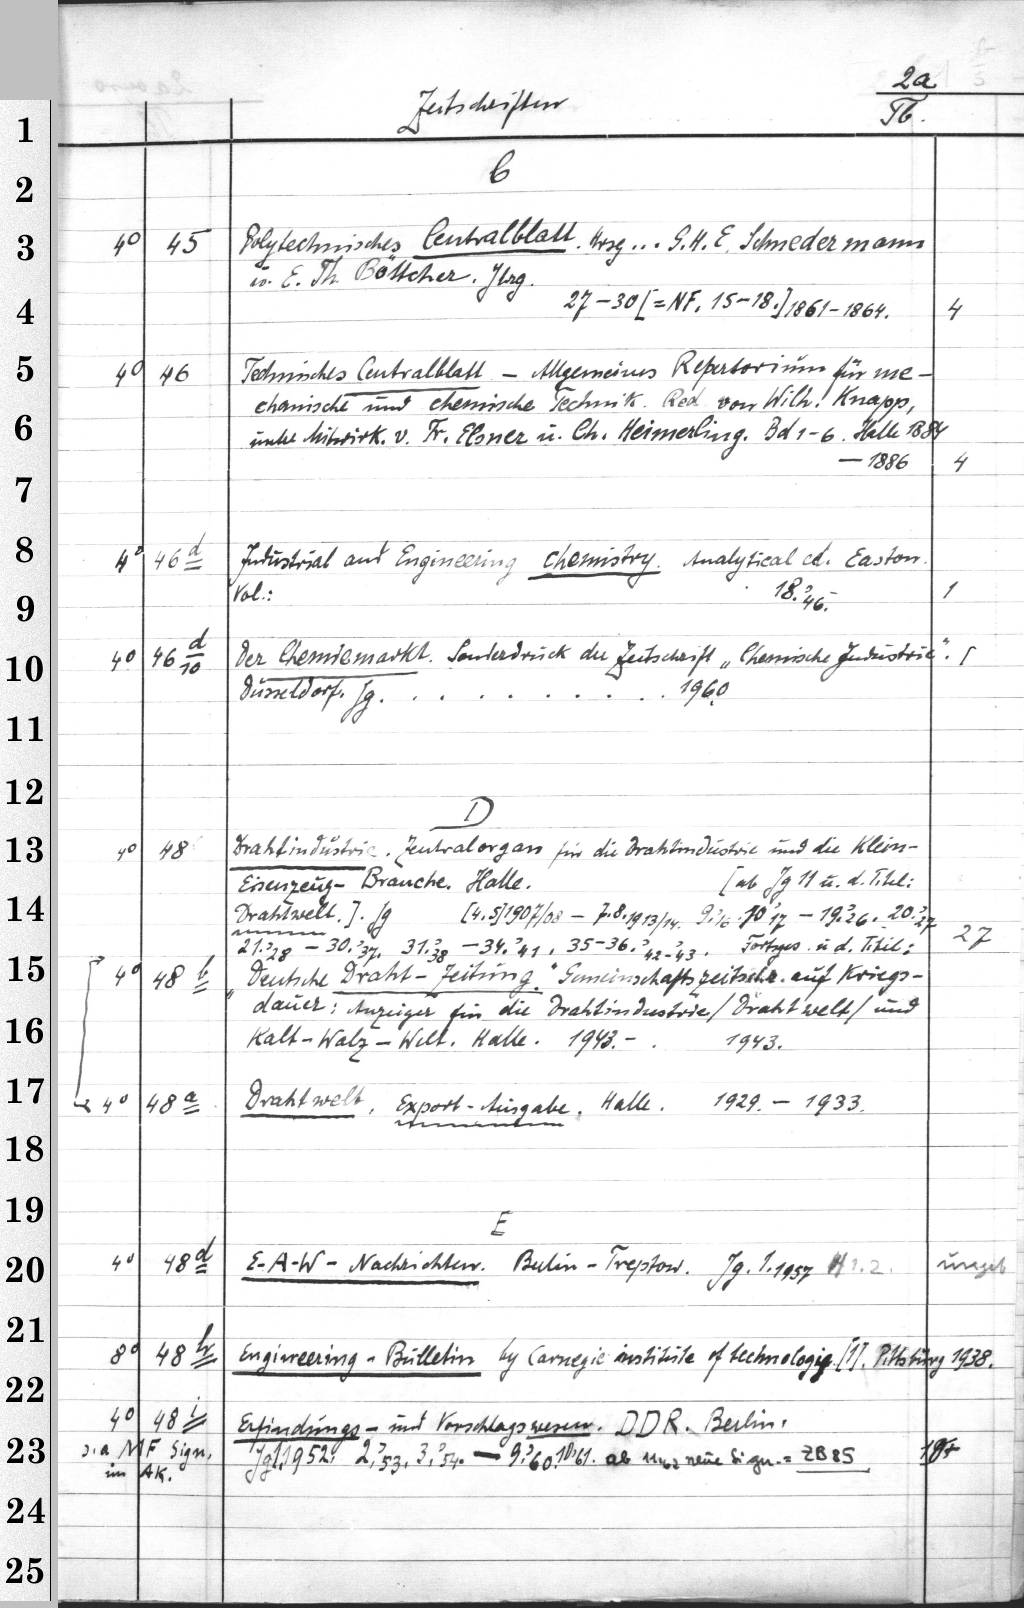 2a
Zeitschriften Tb.
1
C
2
3 4° 45 Polytechnisches Centralblatt. Hrsg... G.H.E. Schnedermann
u. E. Th. Böttcher. Jhrg.
4 27-30 [=NF. 15-18.] 1861-1864. 4
5 4° 46 Technisches Centralblatt - Allgemeines Repertorium für me-
chanische und chemische Technik. Red. von Wilh. Knapp,
6 unter Mitwirk. v. Fr. Elsner u. Ch. Heimerling. Bd 1-6. Halle 1884
- 1886 4
7
8 4° 46 d Industrial and Engineering Chemistry. Analytical ed. Easton.
9 Vol.: 18.'46. 1
10 4° 46 d/10 Der Chemiemarkt. Sonderdruck der Zeitschrift „Chemische Industrie". 1
Düsseldorf. Jg. . . . . . . . . . . 1960
11
12
D
13 4° 48 Drahtindustrie. Zentralorgan für die Drahtindustrie und die Klein-
Eisenzeug-Branche. Halle. [ab Jg 11 u. d. Titel:
14 Drahtwelt.]. Jg [4.5] 1907/08 - 7.8. 1913/14. 9.'16. 10.'17 - 19.'26. 20.'27
21.'28 - 30.'37. 31.'38 - 34.'41. 35-36.'42-'43. Fortges. u. d. Titel: 27
15 4° 48 b „Deutsche Draht-Zeitung." Gemeinschaftszeitschr. auf Kriegs-
dauer: Anzeiger für die Drahtindustrie/Drahtwelt/und
16 Kalt-Walz-Welt. Halle. 1943.- . 1943.
17 4° 48 a Drahtwelt. Export-Ausgabe. Halle. 1929. - 1933.
18
19
E
20 4° 48 d E-A-W-Nachrichten. Berlin-Treptow. Jg. 1. 1957 H 1.2. ungeb
21
8° 48 h Engineering-Bulletin by Carnegie institute of technologig. [1]. Pittsburg 1938.
22
4° 48 i Erfindungs- und Vorschlagswesen. DDR. Berlin.
23 s. a. MF Sign. Jg 1.1952. 2.'53. 3.'54. - 9.'60. 10.'61. ab neue Sign. = ZB 85
im AK.
24
25